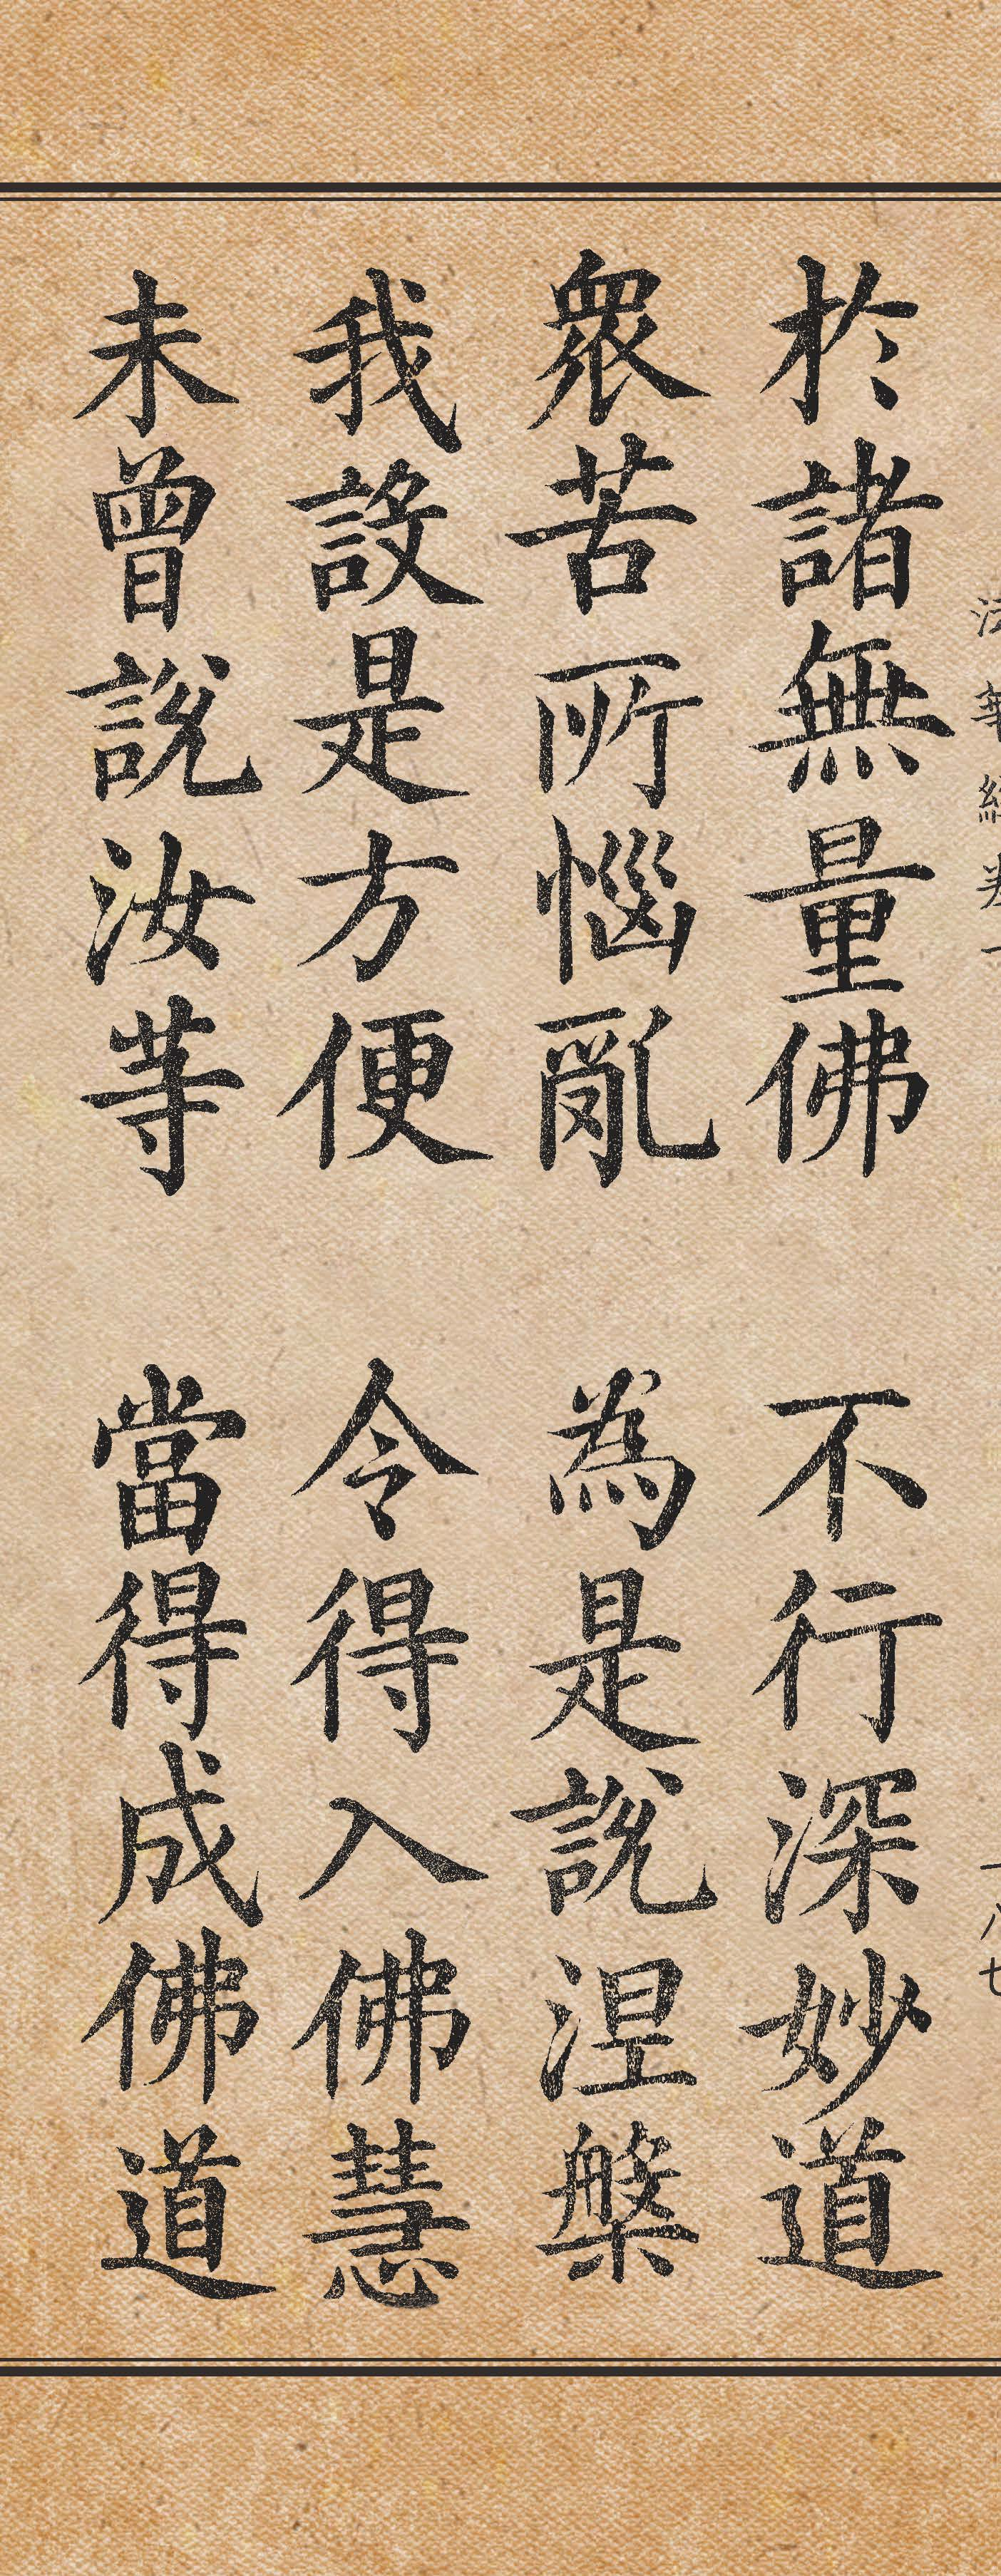 於諸無量佛 不行深妙道
衆苦所惱亂 為是說涅槃
我設是方便 令得入佛慧
未曾說汝等 當得成佛道